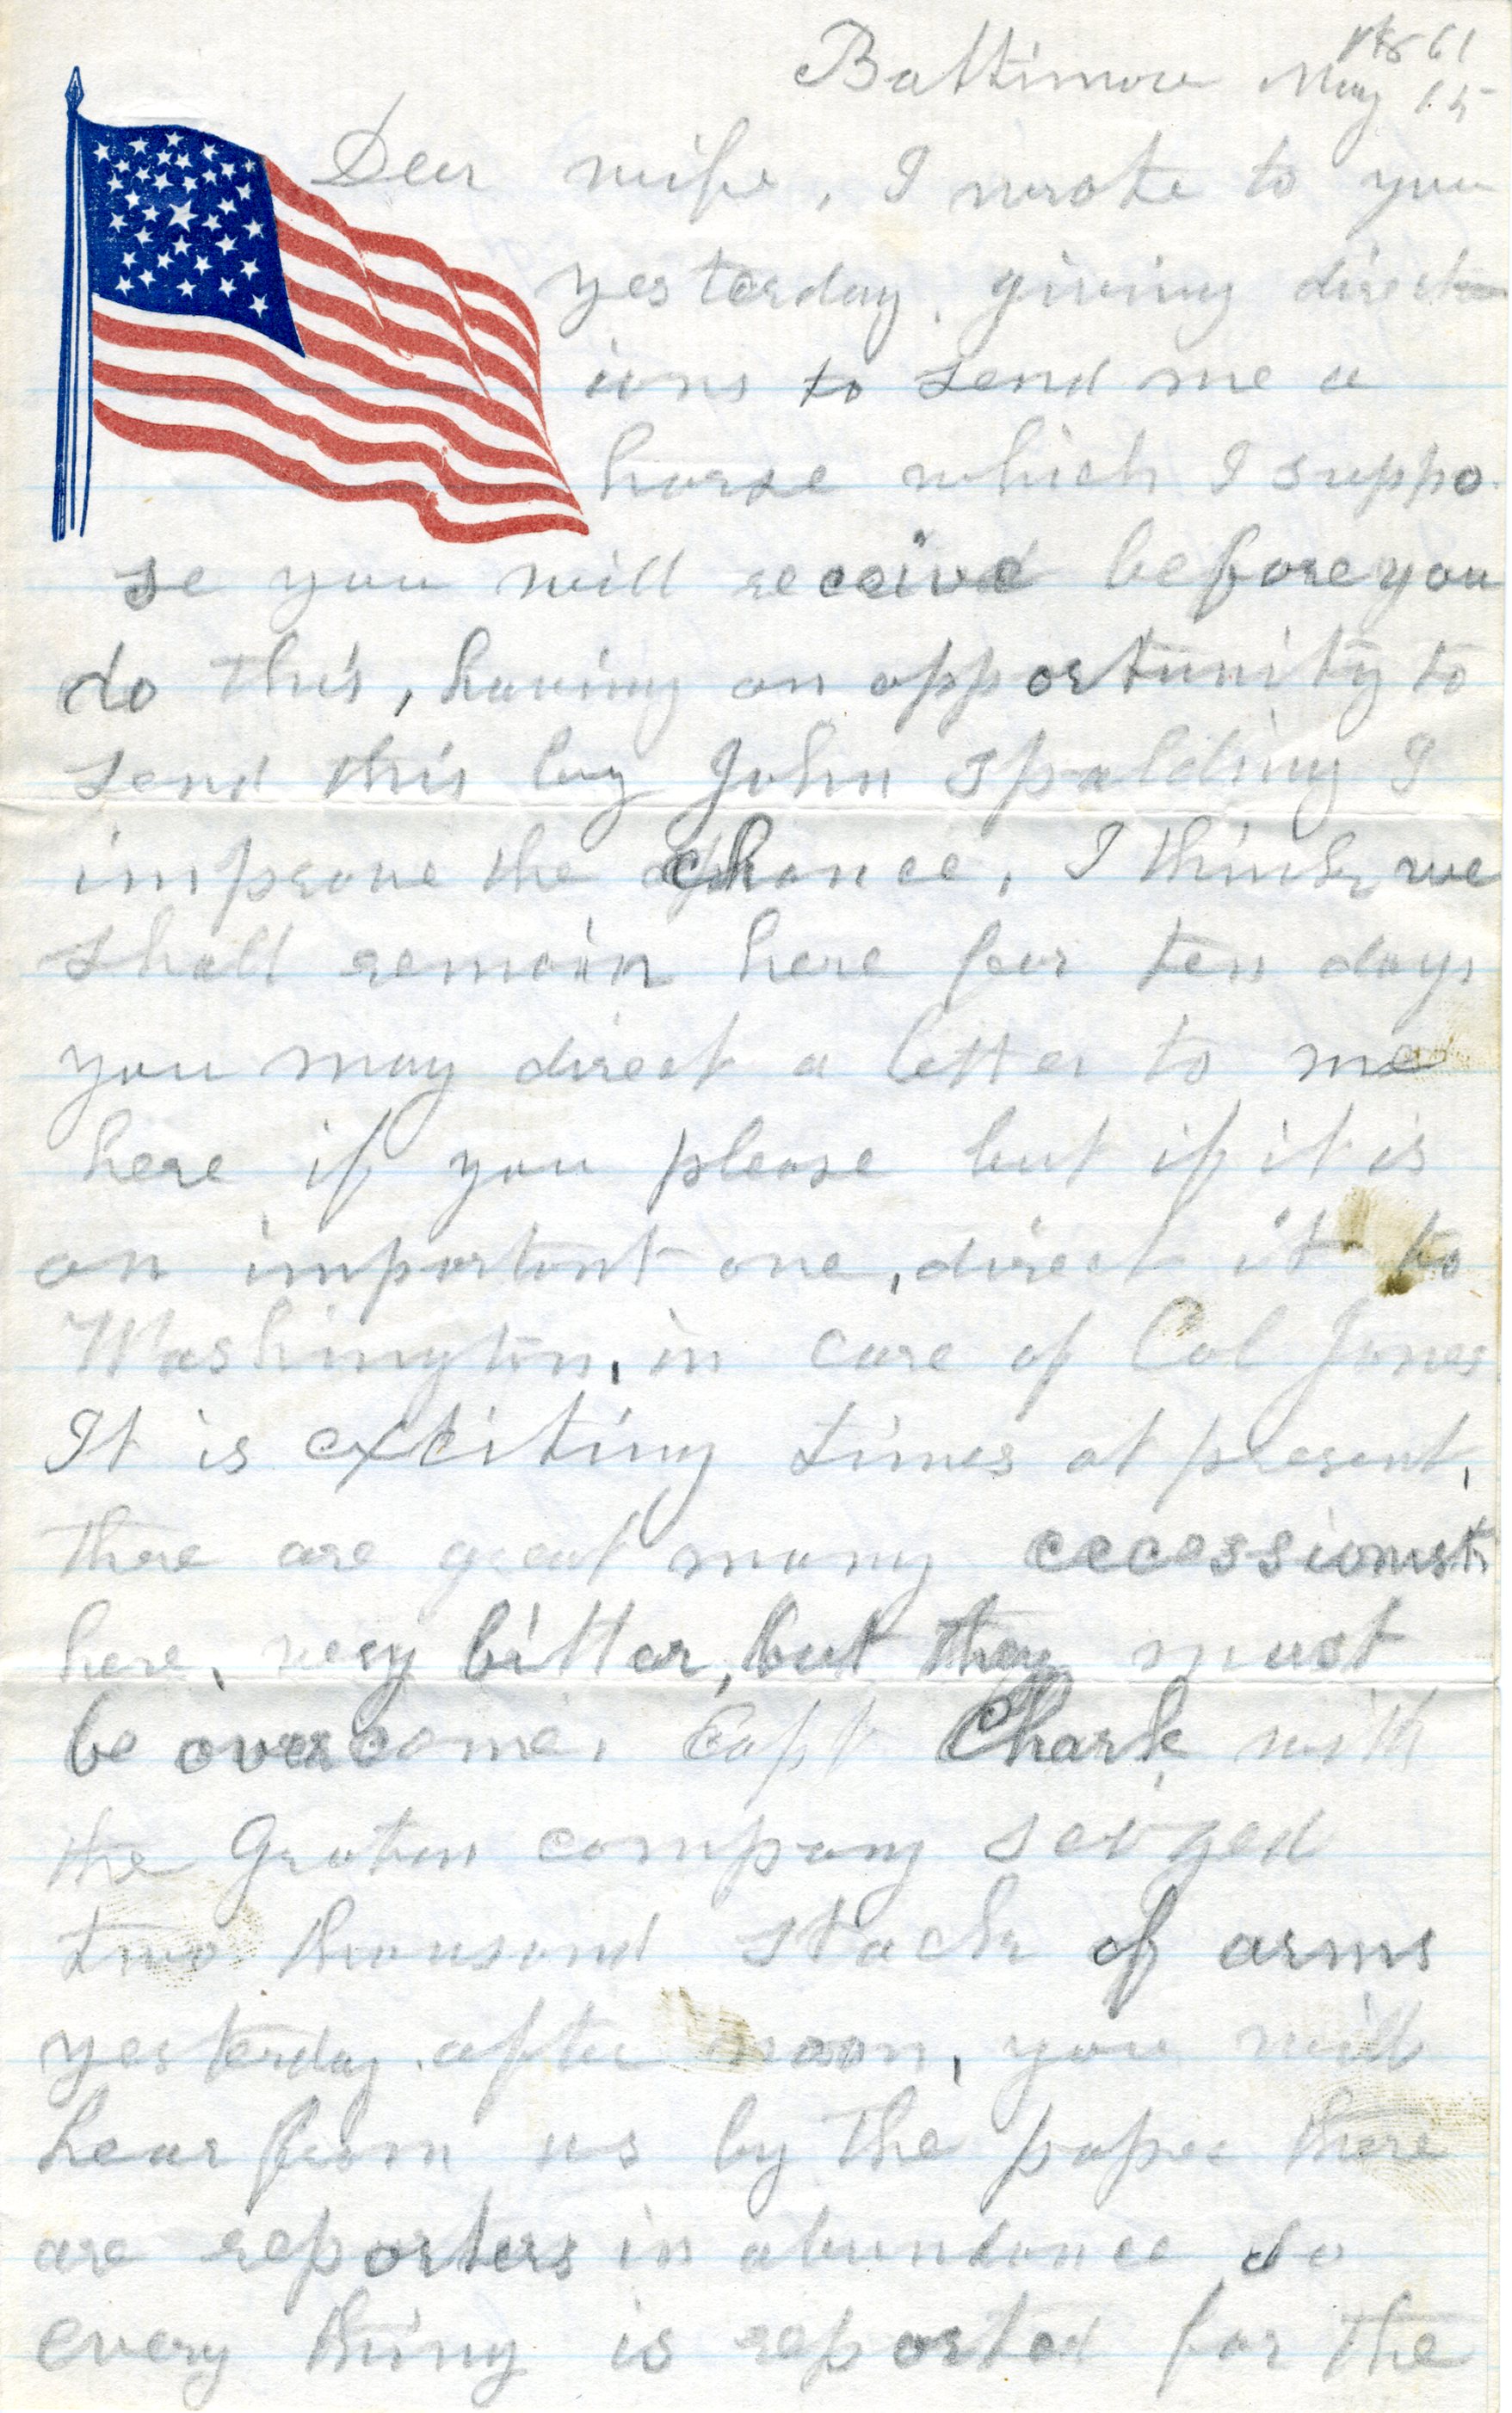 Baltimore May 15
61
Dear wife, I wrote to you
yesterday, giving direct
ions to send me a
horse which I suppo
se you will receive before you
do this, having an opportunity to
send this by John Spalding I
improve the chance. I think we
shall remain here for ten days
you may direct a letter to me
here if you please but if it is
an important one, direct it to
Washington, in care of Col Jones
It is exciting times at present,
there are great many cecessionists
here, very bitter, but they must
be overcome. Capt Chark with
the Groton company seized
two thousand stack of arms
yesterday afternoon, you will
hear from us by the paper there
are reporters in abundance so
every thing is reported for the